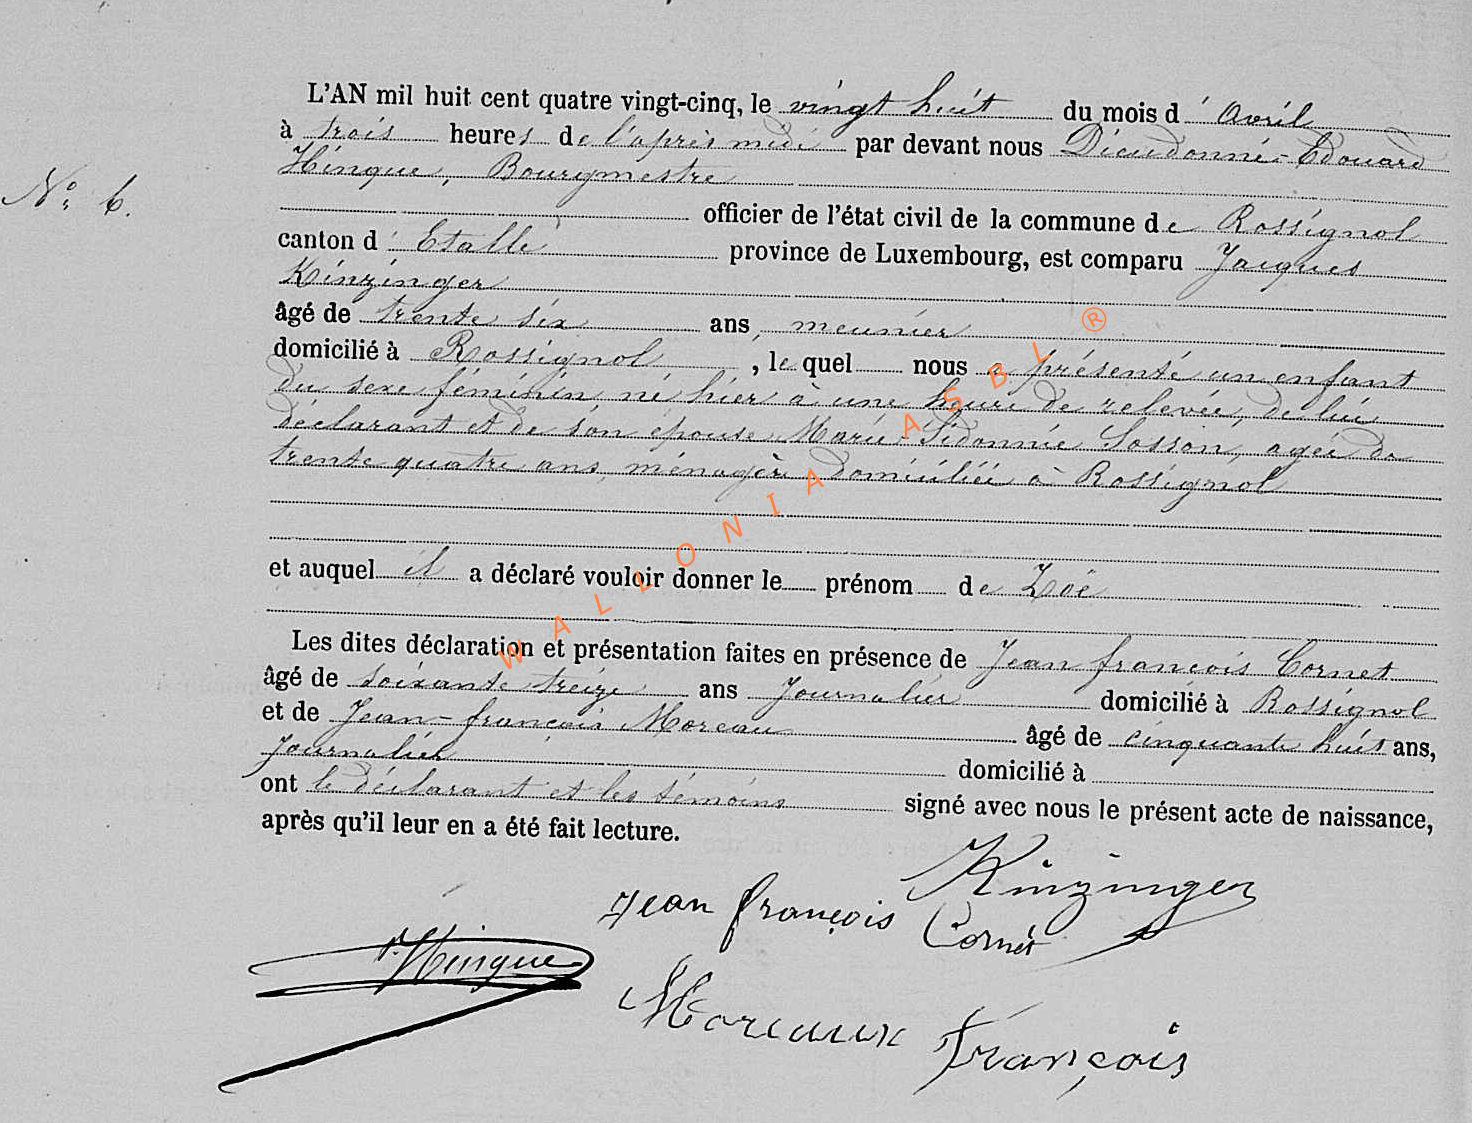 L'AN mil huit cent quatre vingt-cinq, le vingt huit du mois d' Avril
à trois heures de l'après midi par devant nous Dieudonné-Edouard
Hinque, Bourgmestre
N° 6.
officier de l'état civil de la commune de Rossignol
canton d' Etalle province de Luxembourg, est comparu Jacques
Kinzinger
âgé de trente six ans, meunier
domicilié à Rossignol, le quel nous a présenté un enfant
du sexe féminin né hier à une heure de relevée, de lui
déclarant et de son épouse Marie-Sidonnie Sosson, agée de
trente quatre ans, ménagère domiciliée à Rossignol
et auquel il a déclaré vouloir donner le prénom de Zoë
Les dites déclaration et présentation faites en présence de Jean françois Cornet
âgé de soixante treize ans Journalier domicilié à Rossignol
et de Jean-françois Moreau âgé de cinquante huit ans,
Journalier domicilié à
ont le déclarant et les témoins signé avec nous le présent acte de naissance,
après qu'il leur en a été fait lecture.
Kinzinger
Jean françois Cornet
Hinque
Moreaux François
WALLONIA ASBL ®